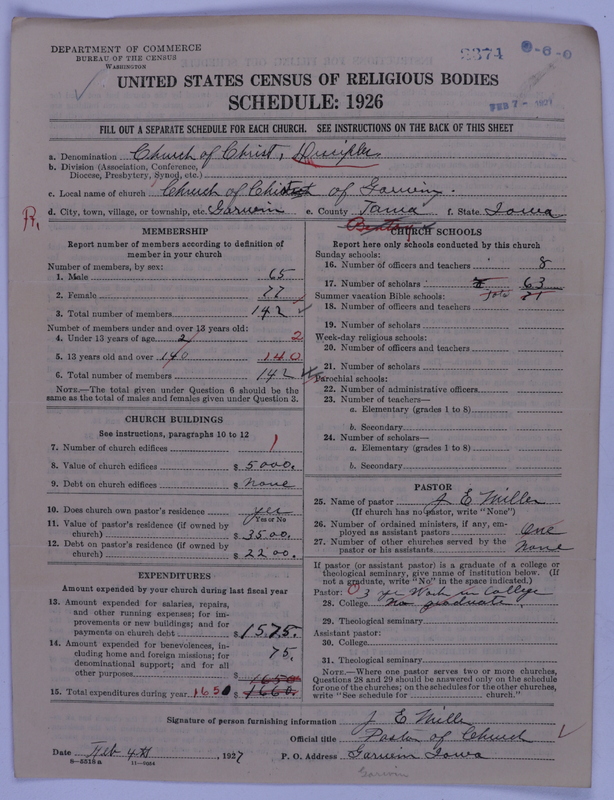 DEPARTMENT OF COMMERCE
BUREAU OF THE CENSUS
WASHINGTON
UNITED STATES CENSUS OF RELIGIOUS BODIES
SCHEDULE: 1926
FILL OUT A SEPARATE SCHEDULE FOR EACH CHURCH. SEE INSTRUCTIONS ON THE BACK OF THIS SHEET
a. Denomination Church of Christ, Disciples
b. Division (Association, Conference, Diocese, Presbytery, Synod, etc.)
c. Local name of church Church of Christ of Garwin.
d. City, town, village, or township, etc. Garwin e. County Tama f. State Iowa
R.
MEMBERSHIP
Report number of members according to definition of member in your church
Number of members, by sex:
1. Male 65
2. Female 77
3. Total number of members 142
Number of members under and over 13 years old:
4. Under 13 years of age 2 2
5. 13 years old and over 140 140
6. Total number of members 142
NOTE.—The total given under Question 6 should be the same as the total of males and females given under Question 3.
CHURCH BUILDINGS
See instructions, paragraphs 10 to 12
7. Number of church edifices 1
8. Value of church edifices $ 5000.
9. Debt on church edifices $ None
10. Does church own pastor's residence yes
Yes or No
11. Value of pastor's residence (if owned by church) $ 3500.
12. Debt on pastor's residence (if owned by church) $ 2200.
EXPENDITURES
Amount expended by your church during last fiscal year
13. Amount expended for salaries, repairs, and other running expenses; for improvements or new buildings; and for payments on church debt $ 1575.
14. Amount expended for benevolences, including home and foreign missions; for denominational support; and for all other purposes $ 75.
1650
15. Total expenditures during year 1650 $ 1660.
CHURCH SCHOOLS
Report here only schools conducted by this church
Sunday schools:
16. Number of officers and teachers 8
17. Number of scholars 63
Summer vacation Bible schools:
18. Number of officers and teachers
19. Number of scholars
Week-day religious schools:
20. Number of officers and teachers
21. Number of scholars
Parochial schools:
22. Number of administrative officers
23. Number of teachers—
a. Elementary (grades 1 to 8)
b. Secondary
24. Number of scholars—
a. Elementary (grades 1 to 8)
b. Secondary
PASTOR
25. Name of pastor J E Miller
(If church has no pastor, write "None")
26. Number of ordained ministers, if any, employed as assistant pastors One
27. Number of other churches served by the pastor or his assistants None
If pastor (or assistant pastor) is a graduate of a college or theological seminary, give name of institution below. (If not a graduate, write "No" in the space indicated.)
Pastor: 0 3 yr Work in College
28. College No graduate.
29. Theological seminary
Assistant pastor:
30. College
31. Theological seminary
NOTE.—Where one pastor serves two or more churches, Questions 28 and 29 should be answered only on the schedule for one of the churches; on the schedules for the other churches, write "See schedule for church."
Signature of person furnishing information J E Miller
Official title Pastor of Church
Date Feb 4th, 1927 P. O. Address Garwin Iowa
8—5518a 11—9024
Garwin